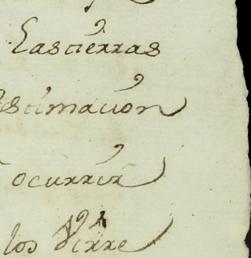 Lastierras
estimacion
ocurrir
los Virre